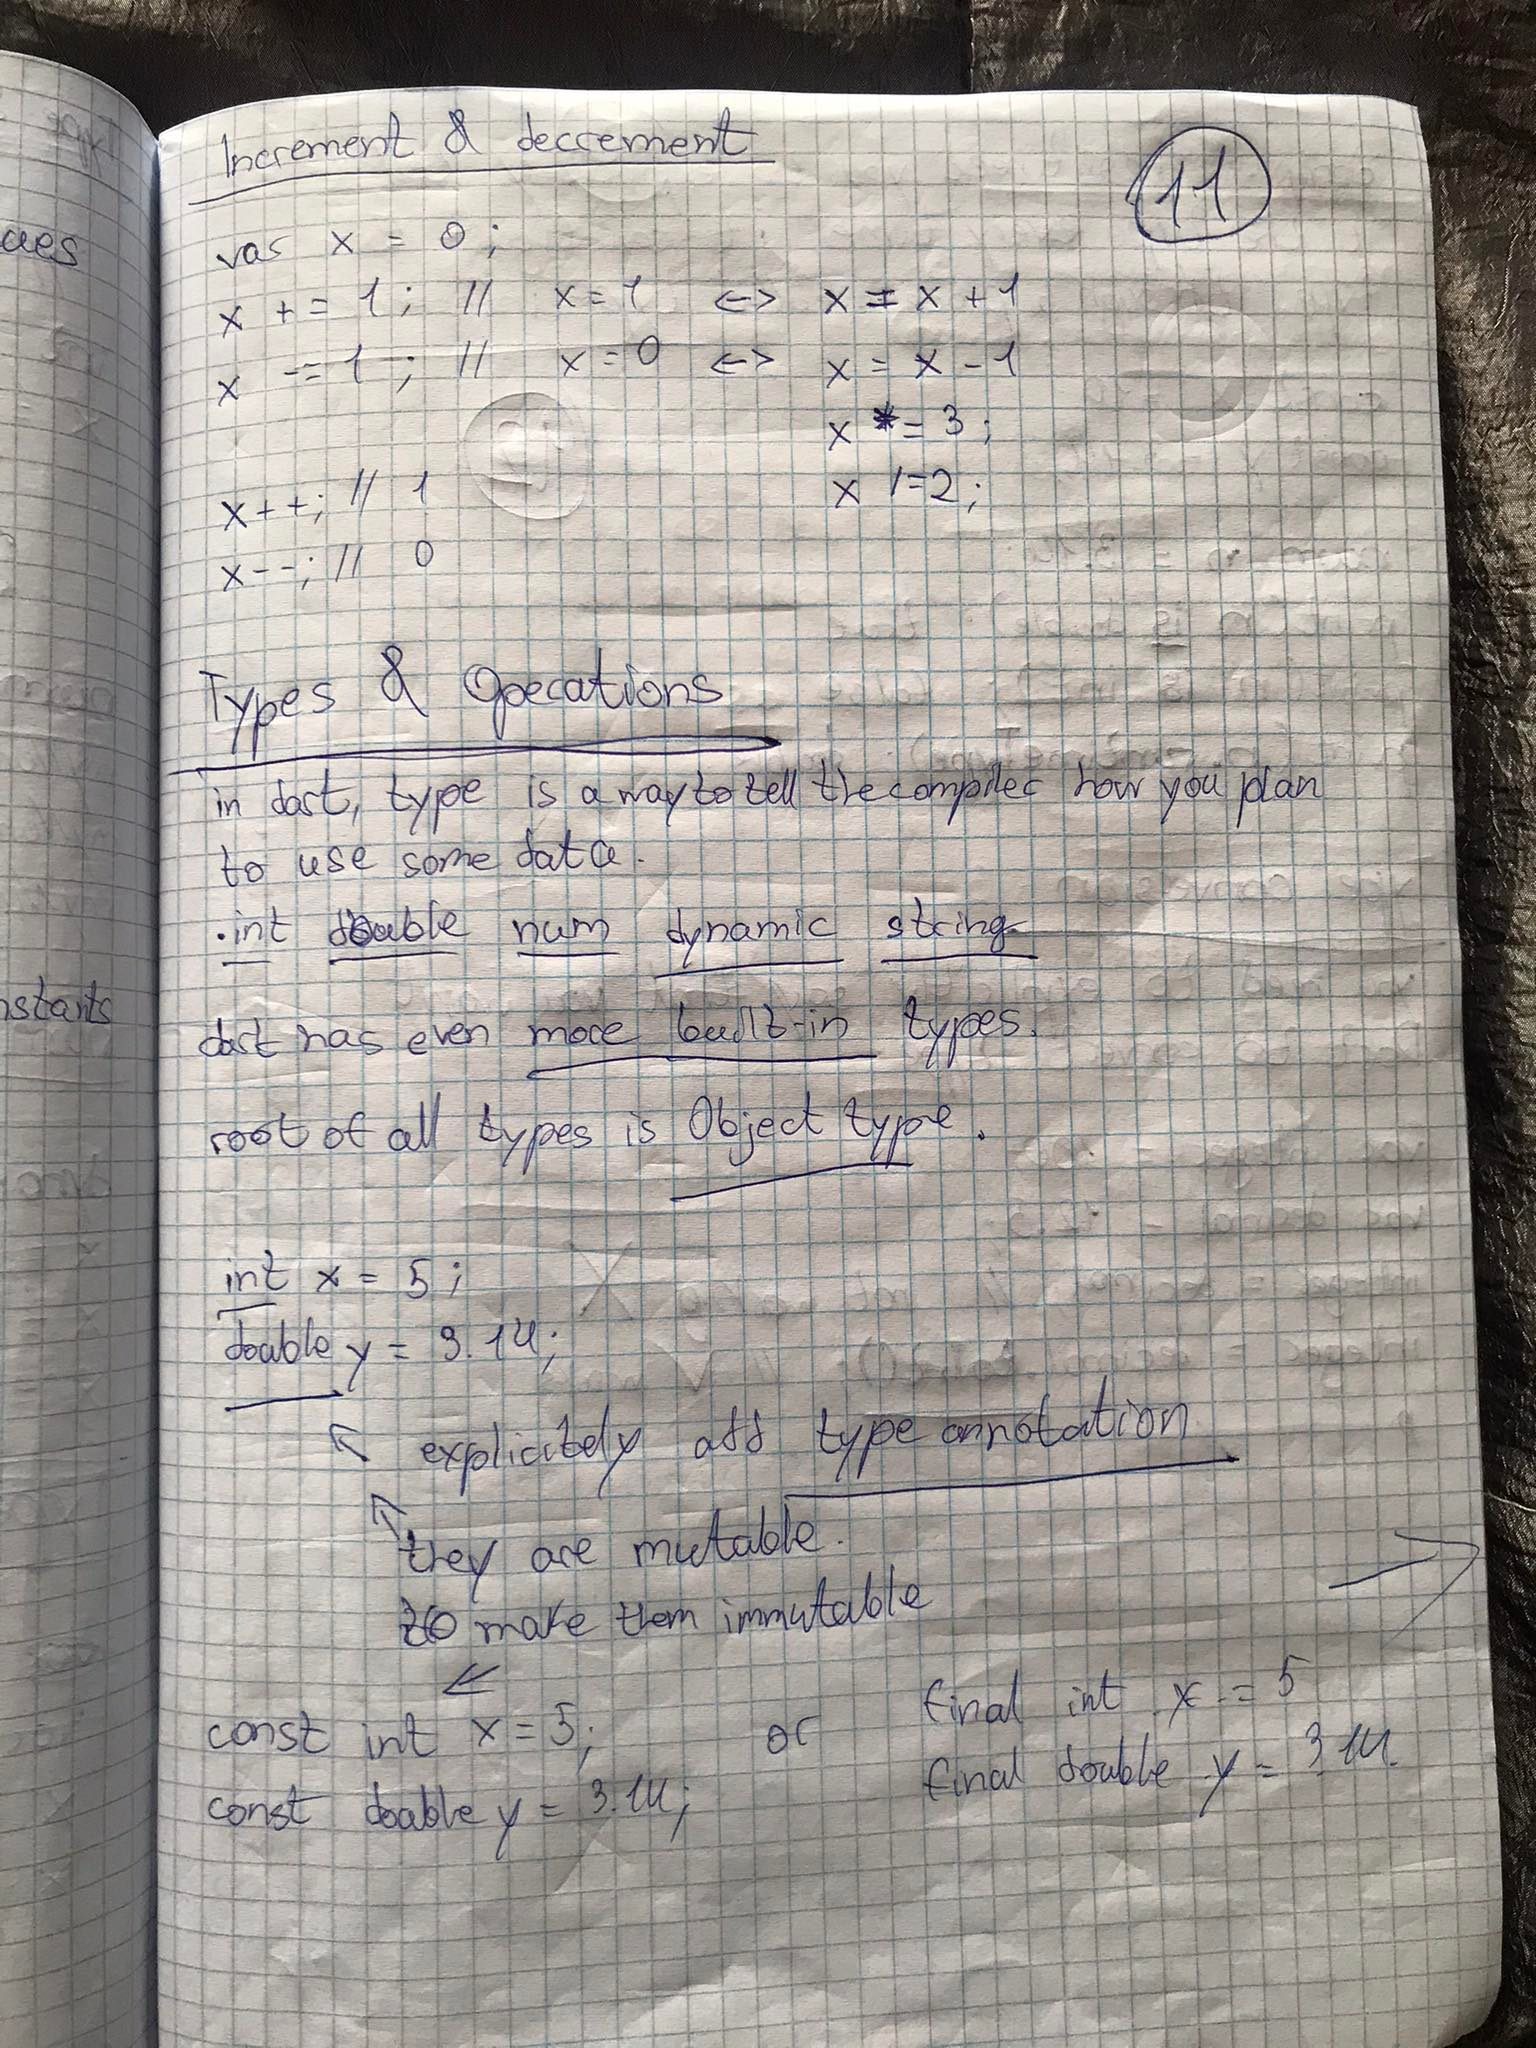 Increment & decrement
11
var x = 0;
x += 1; // x=1 <-> x = x + 1
x -= 1; // x=0 <-> x = x - 1
x *= 3;
x++; // 1
x /= 2;
x--; // 0
Types & Operations
in dart, type is a way to tell the compiler how you plan
to use some data.
. int double num dynamic string
dart has even more built-in types.
root of all types is Object type.
int x = 5;
double y = 3.14;
explicitely add type annotation
they are mutable.
to make them immutable
const int x = 5; or final int x = 5
const double y = 3.14; final double y = 3.14.
ues
nstants